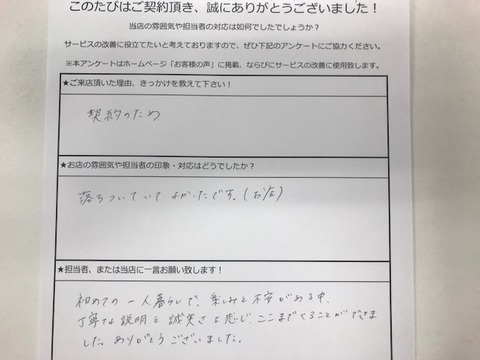 このたびはご契約頂き、誠にありがとうございました！
当店の雰囲気や担当者の対応は如何でしたでしょうか？
サービスの改善に役立てたいと考えておりますので、ぜひ下記のアンケートにご協力ください。
※本アンケートはホームページ「お客様の声」に掲載、ならびにサービスの改善に使用致します。
★ご来店頂いた理由、きっかけを教えて下さい！
契約のため
★お店の雰囲気や担当者の印象・対応はどうでしたか？
落ちついていてよかったです。(お店)
★担当者、または当店に一言お願い致します！
初めての一人暮らしで、楽しみと不安がある中、
丁寧な説明と誠実さを感じ、ここまでくることができま
した。ありがとうございました。